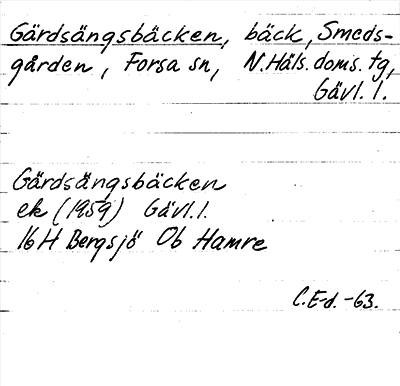 Gärdsängsbäcken, bäck, Smeds-
gården, Forsa sn, N.Häls. doms. tg,
Gävl. l.
Gärdsängsbäcken
ek (1959) Gävl. l.
16H Bergsjö Ob Hamre
C.E-d. -63.